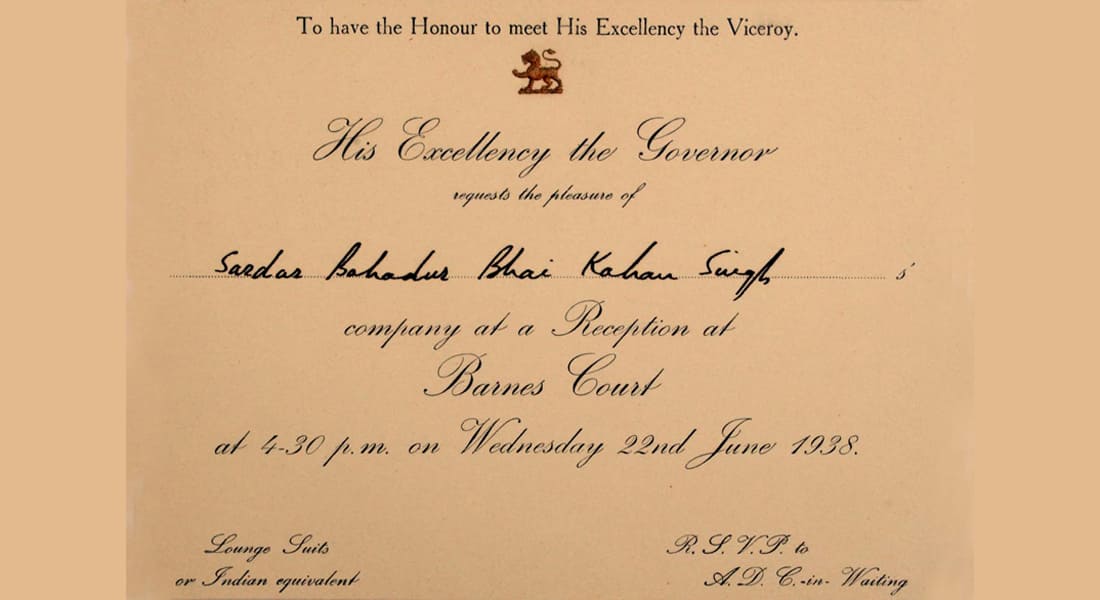 To have the Honour to meet His Excellency the Viceroy.
His Excellency the Governor
requests the pleasure of
Sardar Bahadur Bhai Kahan Singh s'
company at a Reception at
Barnes Court
at 4-30 p.m. on Wednesday 22nd June 1938.
Lounge Suits
or Indian equivalent
R. S. V. P. to
A. D. C.-in- Waiting